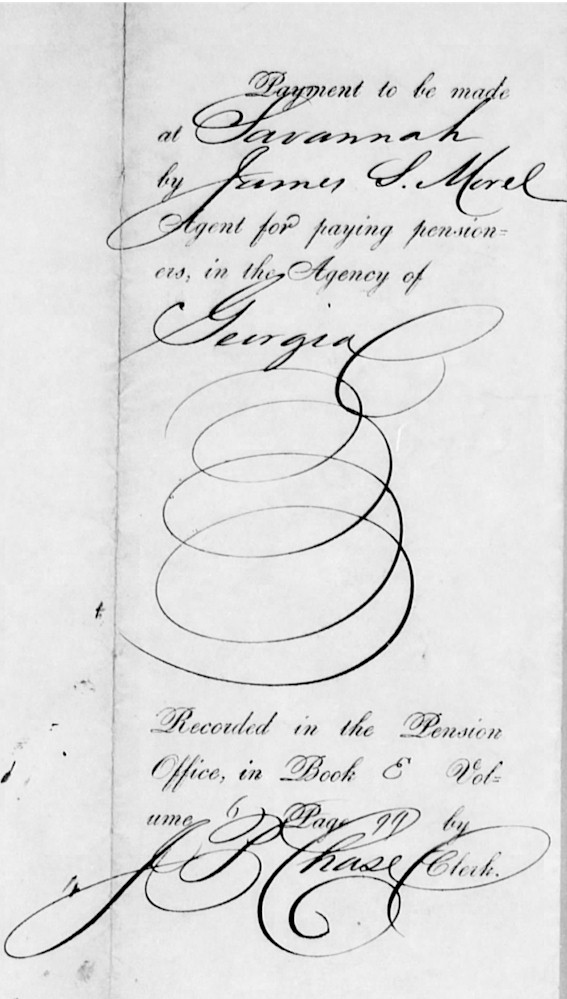 Payment to be made
at Savannah
by James S. Morel
Agent for paying pension=
ers, in the Agency of
Georgia
Recorded in the Pension
Office, in Book E Vol=
ume 6 Page 99 by
J P Chase Clerk.